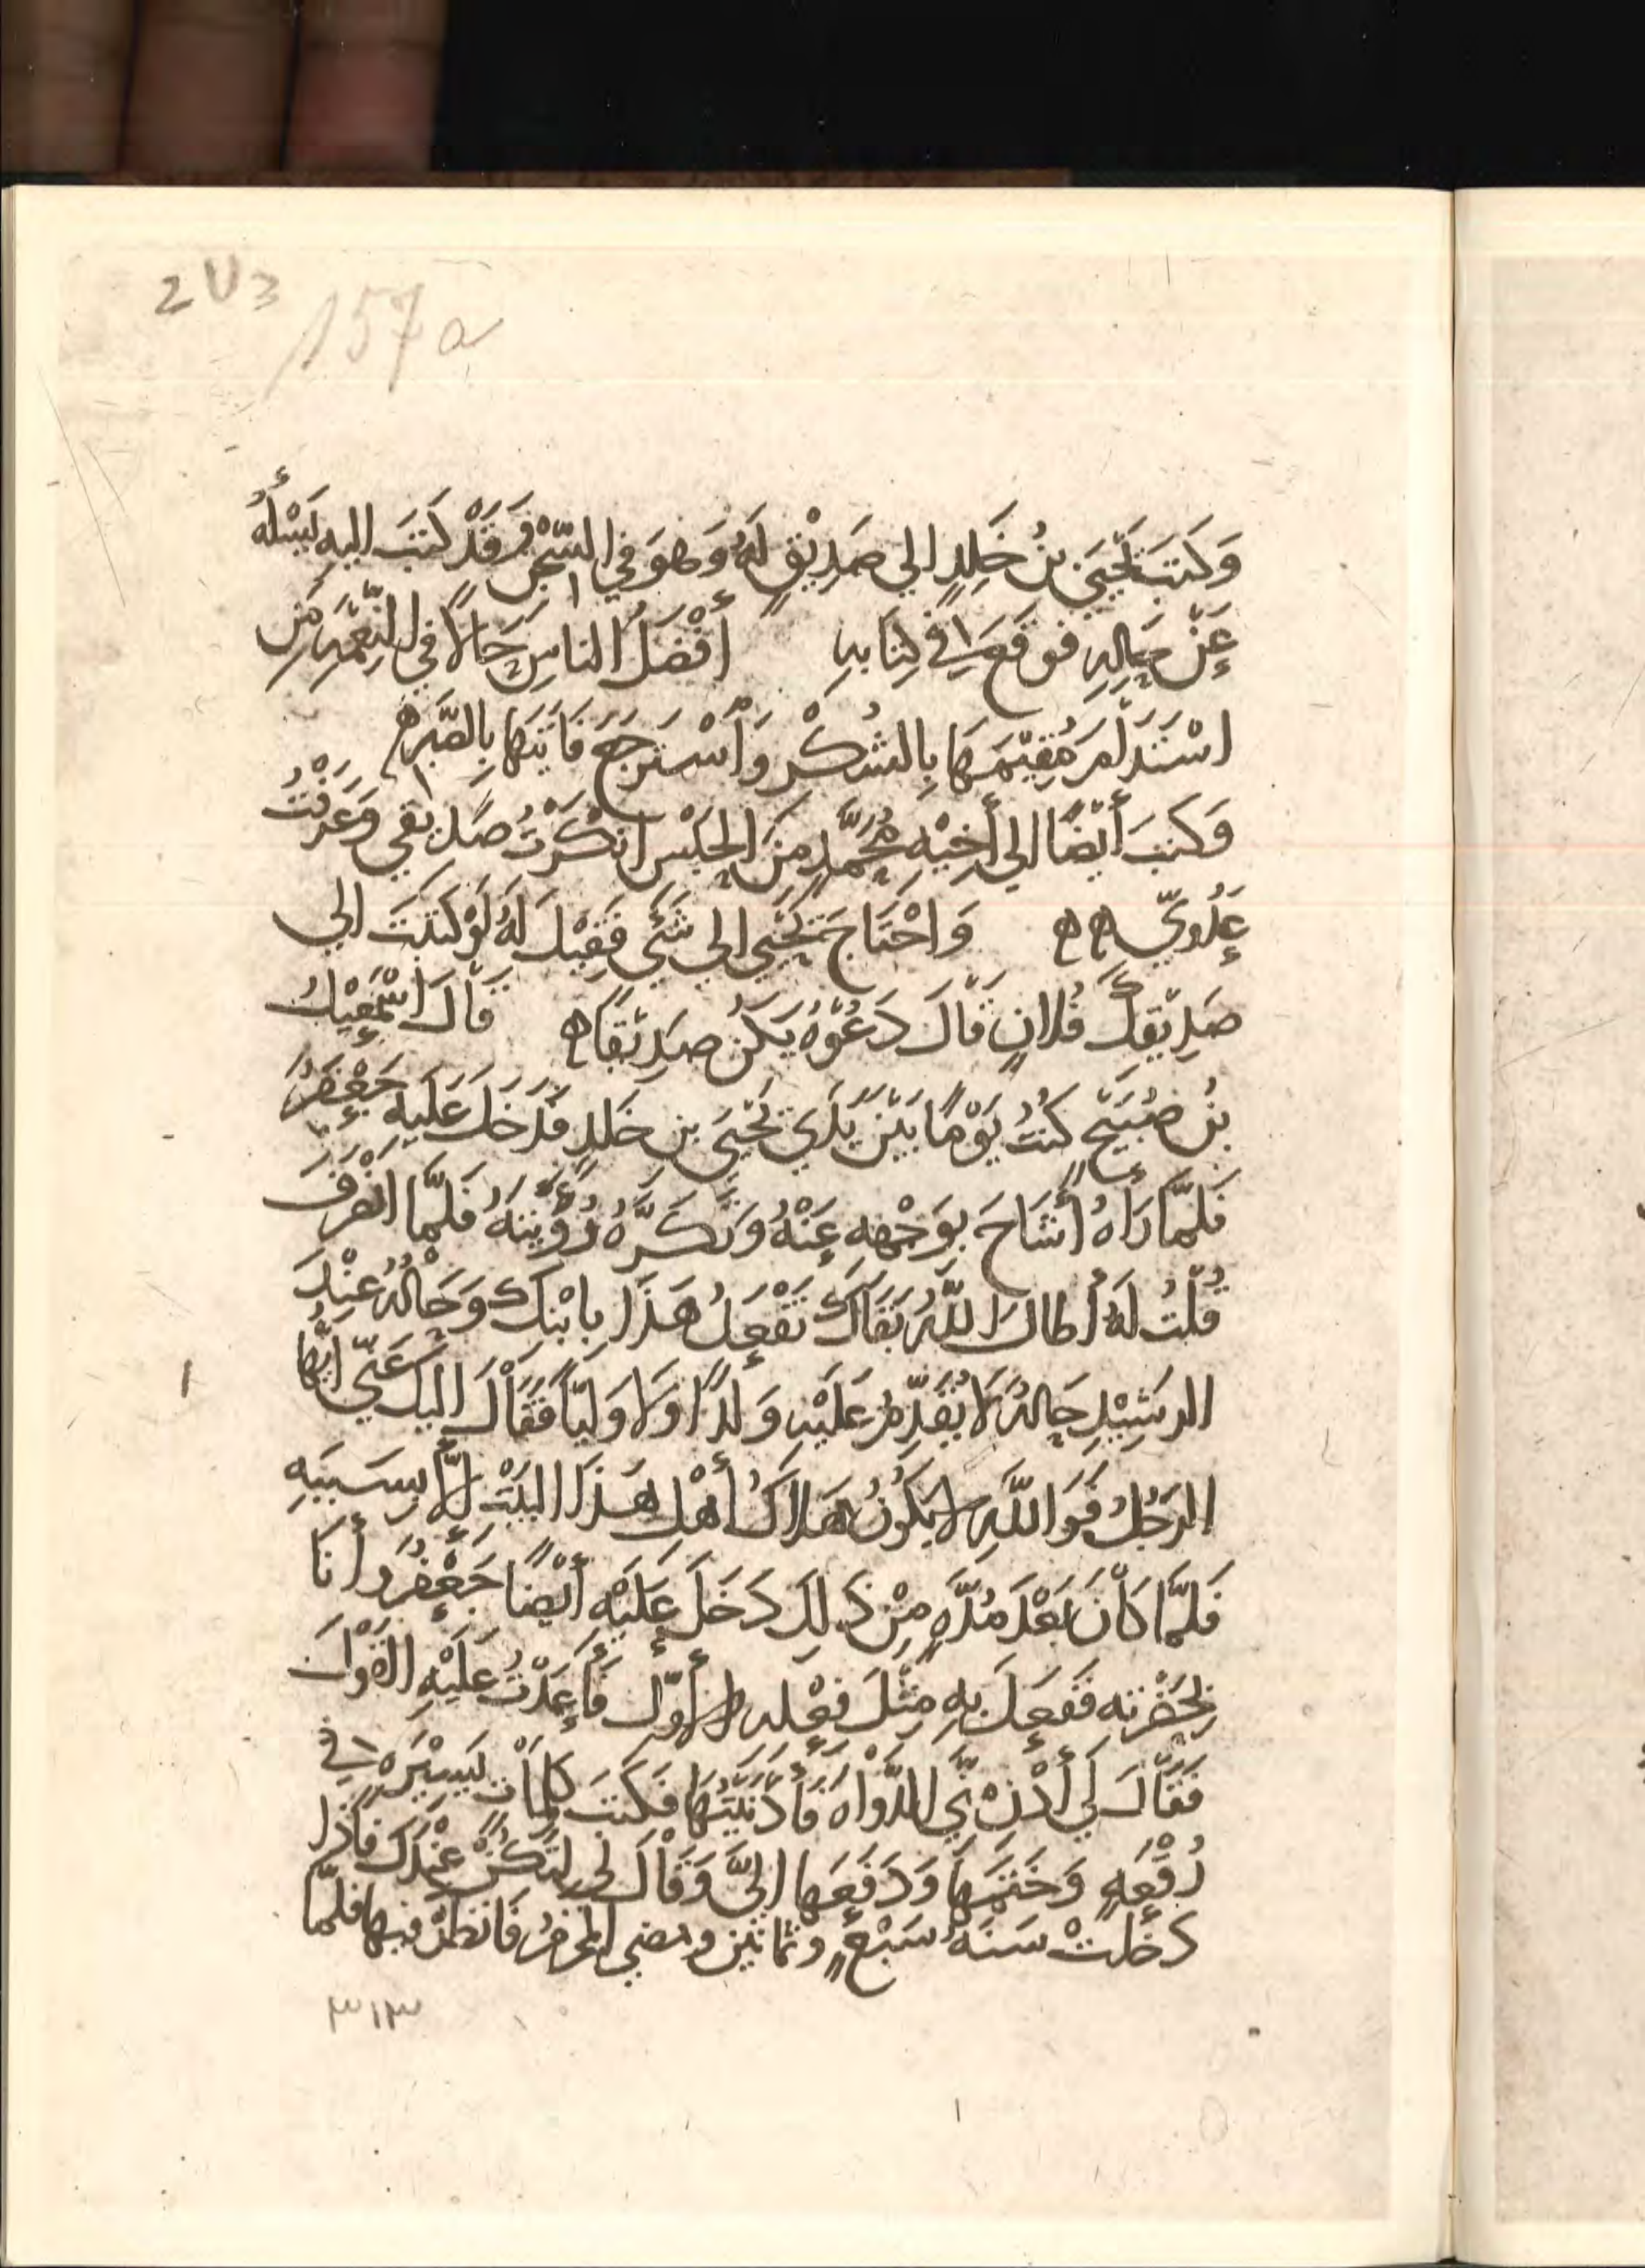 2V3
157a
وَكَتَبَ يَحْيَى بنُ خَلِدٍ الي صَدِيْقٍ لَهُ وَهوَ في السِّجْنِ وَقَدْ كَتَبَ اليهِ يَسْأَلُهُ
عَنْ حَالِهِ فوقعَ في كِتَابهِ أفْضَلُ الناسِ حَالًا في النِّعْمَهِ مَن
اسْتَدَامَ مُقِيْمَهَا بِالشُكْرِ وَاسْتَرجَعَ فَايتَهَا بِالصَّبْرِ ه
وَكتبَ أيْضًا الي أَخِيْهِ مُحَمَّدٍ مِنَ الحَبْسِ انْكَرْتُ صَدِيقي وَعَرَفْتُ
عَدُويّ ه ه وَاحْتَاجَ يَحْيَي الي شَيْءٍ فَقِيْلَ لَهُ لَوْ كَتَبْتَ الي
صَدِيْقِكَ فُلانٍ قَالَ دَعُوْهُ يَكُنْ صَدِيْقًا ه قَالَ اسْمَعِيْلُ
بنُ صُبَيْحٍ كُنْتُ يَوْمًا بَيْنَ يَدَي يَحْيَى بنِ خَلدٍ فدَخَلَ عَلَيهِ جَعْفَرُ
فَلَمَّا رَاهُ أَشَاحَ بوَجْههِ عَنْهُ وَتَكَرَّهُ رُؤْيتهُ فَلَمَّا انْصَرفَ
قُلْتُ لَهُ أطالَ اللَّهُ بَقَاكَ تَفْعَلُ هَذَا بِابْنِكَ وَحَالُهُ عِنْدَ
الرشِيْدِ حَالهُ لَا يُقَدِّمُ عَلَيْهِ وَلَدًا وَلَا وَليًّا فَقَالَ اليكَ عَنّي ايُّهَا
الرَجُلُ فَوَاللَّهِ لا يَكُوْنُ هَلاكُ أهْلِ هَذَا البَيْتِ الَّا بِسَبَبهِ
فَلَمَّا كَانَ بَعْدَ مُدَّهٍ مِنْ ذَلِكَ دَخَلَ عَلَيْهِ أيْضًا جَعْفَرُ وَأنَا
بِحَضْرتهِ فَفَعَلَ بهِ مِثْلَ فِعْلهِ الأوّلِ فَأعَدْتُ عَلَيْهِ القَوْلَ
فَقَالَ لي أدْنِ مِنّي الدَّوَاهَ فَأدْنَيْتُهَا فَكَتَبَ كلِمَاتٍ يَسِيْرَهٍ في
رُقْعَهٍ وَخَتَمَهَا وَدَفَعَهَا اليَّ وَقَالَ لي لِتَكُنْ عِنْدَكَ فَاذَا
دَخلتْ سَنَهُ سَبْعٍ وثمانين ومضي المحرمُ فَانظرْ فيها فلمّا
٣١٣